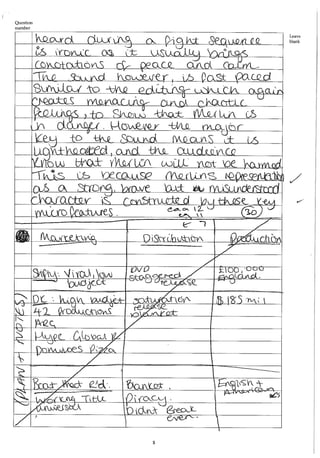 Question
number
Leave
blank
heard during a fight sequence
is ironic as it usually brings
conotations of peace and calm.
The sound however, is fast paced
similar to the editing which again
creates menacing and chaotic
feelings, to show that Merlin is
in danger. However the major
key to the sound means it is
lighthearted, and the audience
know that Merlin will not be harmed
This is because merlins representation
as a strong, brave but misunderstood
character is constructed by these key
micro features.
EAA 12
EX 11
T 7
30
Marketing Distribution Production
(PLAN + NOTES)
Shifty: Viral, low
budject
DVD
staggered
release
£100,000
England.
DK: high budject
42 Productions
ARG
Hype Global
Dominoes Pizza
saturation
release
blanket
$185 mil
Boat that R'd:
Working Title
universal
Blanket.
Piracy.
Didnt Break
even.
English +
American